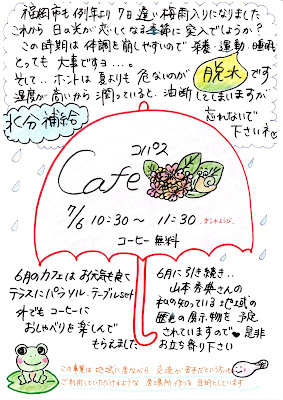 福岡市も例年より7日遅い梅雨入りになりました
これから日の光が恋しくなる季節に突入でしょうか?
この時期は体調を崩しやすいので栄養・運動・睡眠
とっても大事ですョ…。
そして..ホントは夏よりも危ないのが脱水です
湿度が高いから潤っていると、油断してしまいますが
忘れないで
下さいネ
水分補給
コリパス
Cafe
7/6 10:30~11:30
コーヒー無料
6月のカフェはお天気も良く
テラスにパラソル.テーブルset
外でもコーヒーに
おしゃべりを楽しんで
もらえました
6月に引き続き..
山本秀典さんの
私の知っている地域の
歴史の展示物を予定
されていますので是非
お立ち寄り下さい
この事業は地域に居ながら交流が苦手だという方に
ご利用していただけるような居場所作りを目的としています